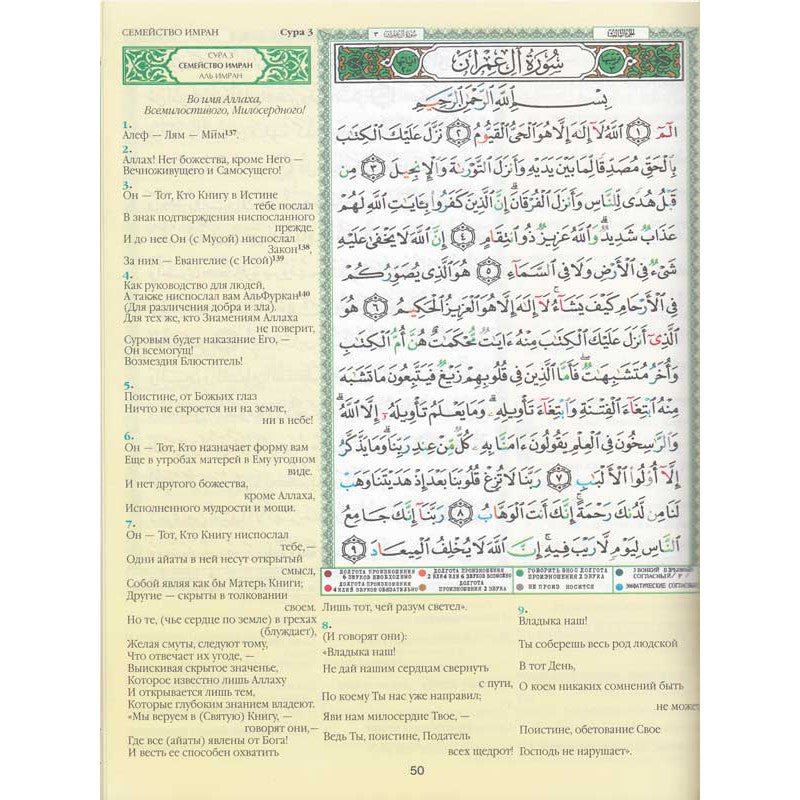 СЕМЕЙСТВО ИМРАН Сура 3
СУРА 3
СЕМЕЙСТВО ИМРАН
АЛЬ ИМРАН
Во имя Аллаха,
Всемилостивого, Милосердного!
1.
Алеф — Лям — Мим137.
2.
Аллах! Нет божества, кроме Него —
Вечноживущего и Самосущего!
3.
Он — Тот, Кто Книгу в Истине
тебе послал
В знак подтверждения ниспосланного
прежде.
И до нее Он (с Мусой) ниспослал
Закон138,
За ним — Евангелие (с Исой)139
4.
Как руководство для людей,
А также ниспослал вам АльФуркан140
(Для различения добра и зла).
Для тех же, кто Знамениям Аллаха
не поверит,
Суровым будет наказание Его, —
Он всемогущ!
Возмездия Блюститель!
5.
Поистине, от Божьих глаз
Ничто не скроется ни на земле,
ни в небе!
6.
Он — Тот, Кто назначает форму вам
Еще в утробах матерей в Ему угодном
виде.
И нет другого божества,
кроме Аллаха,
Исполненного мудрости и мощи.
7.
Он — Тот, Кто Книгу ниспослал
тебе,—
Одни айаты в ней несут открытый
смысл,
Собой являя как бы Матерь Книги;
Другие — скрыты в толковании
своем.
Но те, (чье сердце по земле) в грехах
(блуждает),
Желая смуты, следуют тому,
Что отвечает их угоде, —
Выискивая скрытое значенье,
Которое известно лишь Аллаху
И открывается лишь тем,
Которые глубоким знанием владеют.
«Мы веруем в (Святую) Книгу, —
говорят они,—
Где все (айаты) явлены от Бога!
И весть ее способен охватить
سُورَةُ آلِ عِمْرَانَ ٣
الجزء الثالث
سُورَةُ آلِ عِمْرَانَ
بِسْمِ اللَّهِ الرَّحْمَٰنِ الرَّحِيمِ
الٓمٓ ١ ٱللَّهُ لَآ إِلَٰهَ إِلَّا هُوَ ٱلْحَىُّ ٱلْقَيُّومُ ٢ نَزَّلَ عَلَيْكَ ٱلْكِتَٰبَ
بِٱلْحَقِّ مُصَدِّقًا لِّمَا بَيْنَ يَدَيْهِ وَأَنزَلَ ٱلتَّوْرَىٰةَ وَٱلْإِنجِيلَ ٣ مِن
قَبْلُ هُدًى لِّلنَّاسِ وَأَنزَلَ ٱلْفُرْقَانَ إِنَّ ٱلَّذِينَ كَفَرُوا۟ بِـَٔايَٰتِ ٱللَّهِ لَهُمْ
عَذَابٌ شَدِيدٌ وَٱللَّهُ عَزِيزٌ ذُو ٱنتِقَامٍ ٤ إِنَّ ٱللَّهَ لَا يَخْفَىٰ عَلَيْهِ
شَىْءٌ فِى ٱلْأَرْضِ وَلَا فِى ٱلسَّمَآءِ ٥ هُوَ ٱلَّذِى يُصَوِّرُكُمْ
فِى ٱلْأَرْحَامِ كَيْفَ يَشَآءُ لَآ إِلَٰهَ إِلَّا هُوَ ٱلْعَزِيزُ ٱلْحَكِيمُ ٦ هُوَ
ٱلَّذِىٓ أَنزَلَ عَلَيْكَ ٱلْكِتَٰبَ مِنْهُ ءَايَٰتٌ مُّحْكَمَٰتٌ هُنَّ أُمُّ ٱلْكِتَٰبِ
وَأُخَرُ مُتَشَٰبِهَٰتٌ فَأَمَّا ٱلَّذِينَ فِى قُلُوبِهِمْ زَيْغٌ فَيَتَّبِعُونَ مَا تَشَٰبَهَ
مِنْهُ ٱبْتِغَآءَ ٱلْفِتْنَةِ وَٱبْتِغَآءَ تَأْوِيلِهِۦ وَمَا يَعْلَمُ تَأْوِيلَهُۥٓ إِلَّا ٱللَّهُ
وَٱلرَّٰسِخُونَ فِى ٱلْعِلْمِ يَقُولُونَ ءَامَنَّا بِهِۦ كُلٌّ مِّنْ عِندِ رَبِّنَا وَمَا يَذَّكَّرُ
إِلَّآ أُو۟لُوا۟ ٱلْأَلْبَٰبِ ٧ رَبَّنَا لَا تُزِغْ قُلُوبَنَا بَعْدَ إِذْ هَدَيْتَنَا وَهَبْ
لَنَا مِن لَّدُنكَ رَحْمَةً إِنَّكَ أَنتَ ٱلْوَهَّابُ ٨ رَبَّنَآ إِنَّكَ جَامِعُ
ٱلنَّاسِ لِيَوْمٍ لَّا رَيْبَ فِيهِ إِنَّ ٱللَّهَ لَا يُخْلِفُ ٱلْمِيعَادَ ٩
ДОЛГОТА ПРОИЗНОШЕНИЯ
6 ЗВУКОВ НЕОБХОДИМО
ДОЛГОТА ПРОИЗНОШЕНИЯ
2 ИЛИ 4 ИЛИ 6 ЗВУКОВ ВОЗМОЖНО
ГОВОРИТЬ В НОС ДОЛГОТА
ПРОИЗНОШЕНИЯ 2 ЗВУКА
ДОЛГОТА ПРОИЗНОШЕНИЯ
4 ИЛИ 5 ЗВУКОВ ОБЯЗАТЕЛЬНО
ДОЛГОТА
ПРОИЗНОШЕНИЯ 2 ЗВУКА
НЕ ПРОИЗНОСИТСЯ
Лишь тот, чей разум светел».
8.
(И говорят они):
«Владыка наш!
Не дай нашим сердцам свернуть
с пути,
По коему Ты нас уже направил;
Яви нам милосердие Твое, —
Ведь Ты, поистине, Податель
всех щедрот!
9.
Владыка наш!
Ты соберешь весь род людской
В тот День,
О коем никаких сомнений быть
не может
Поистине, обетование Свое
Господь не нарушает».
50